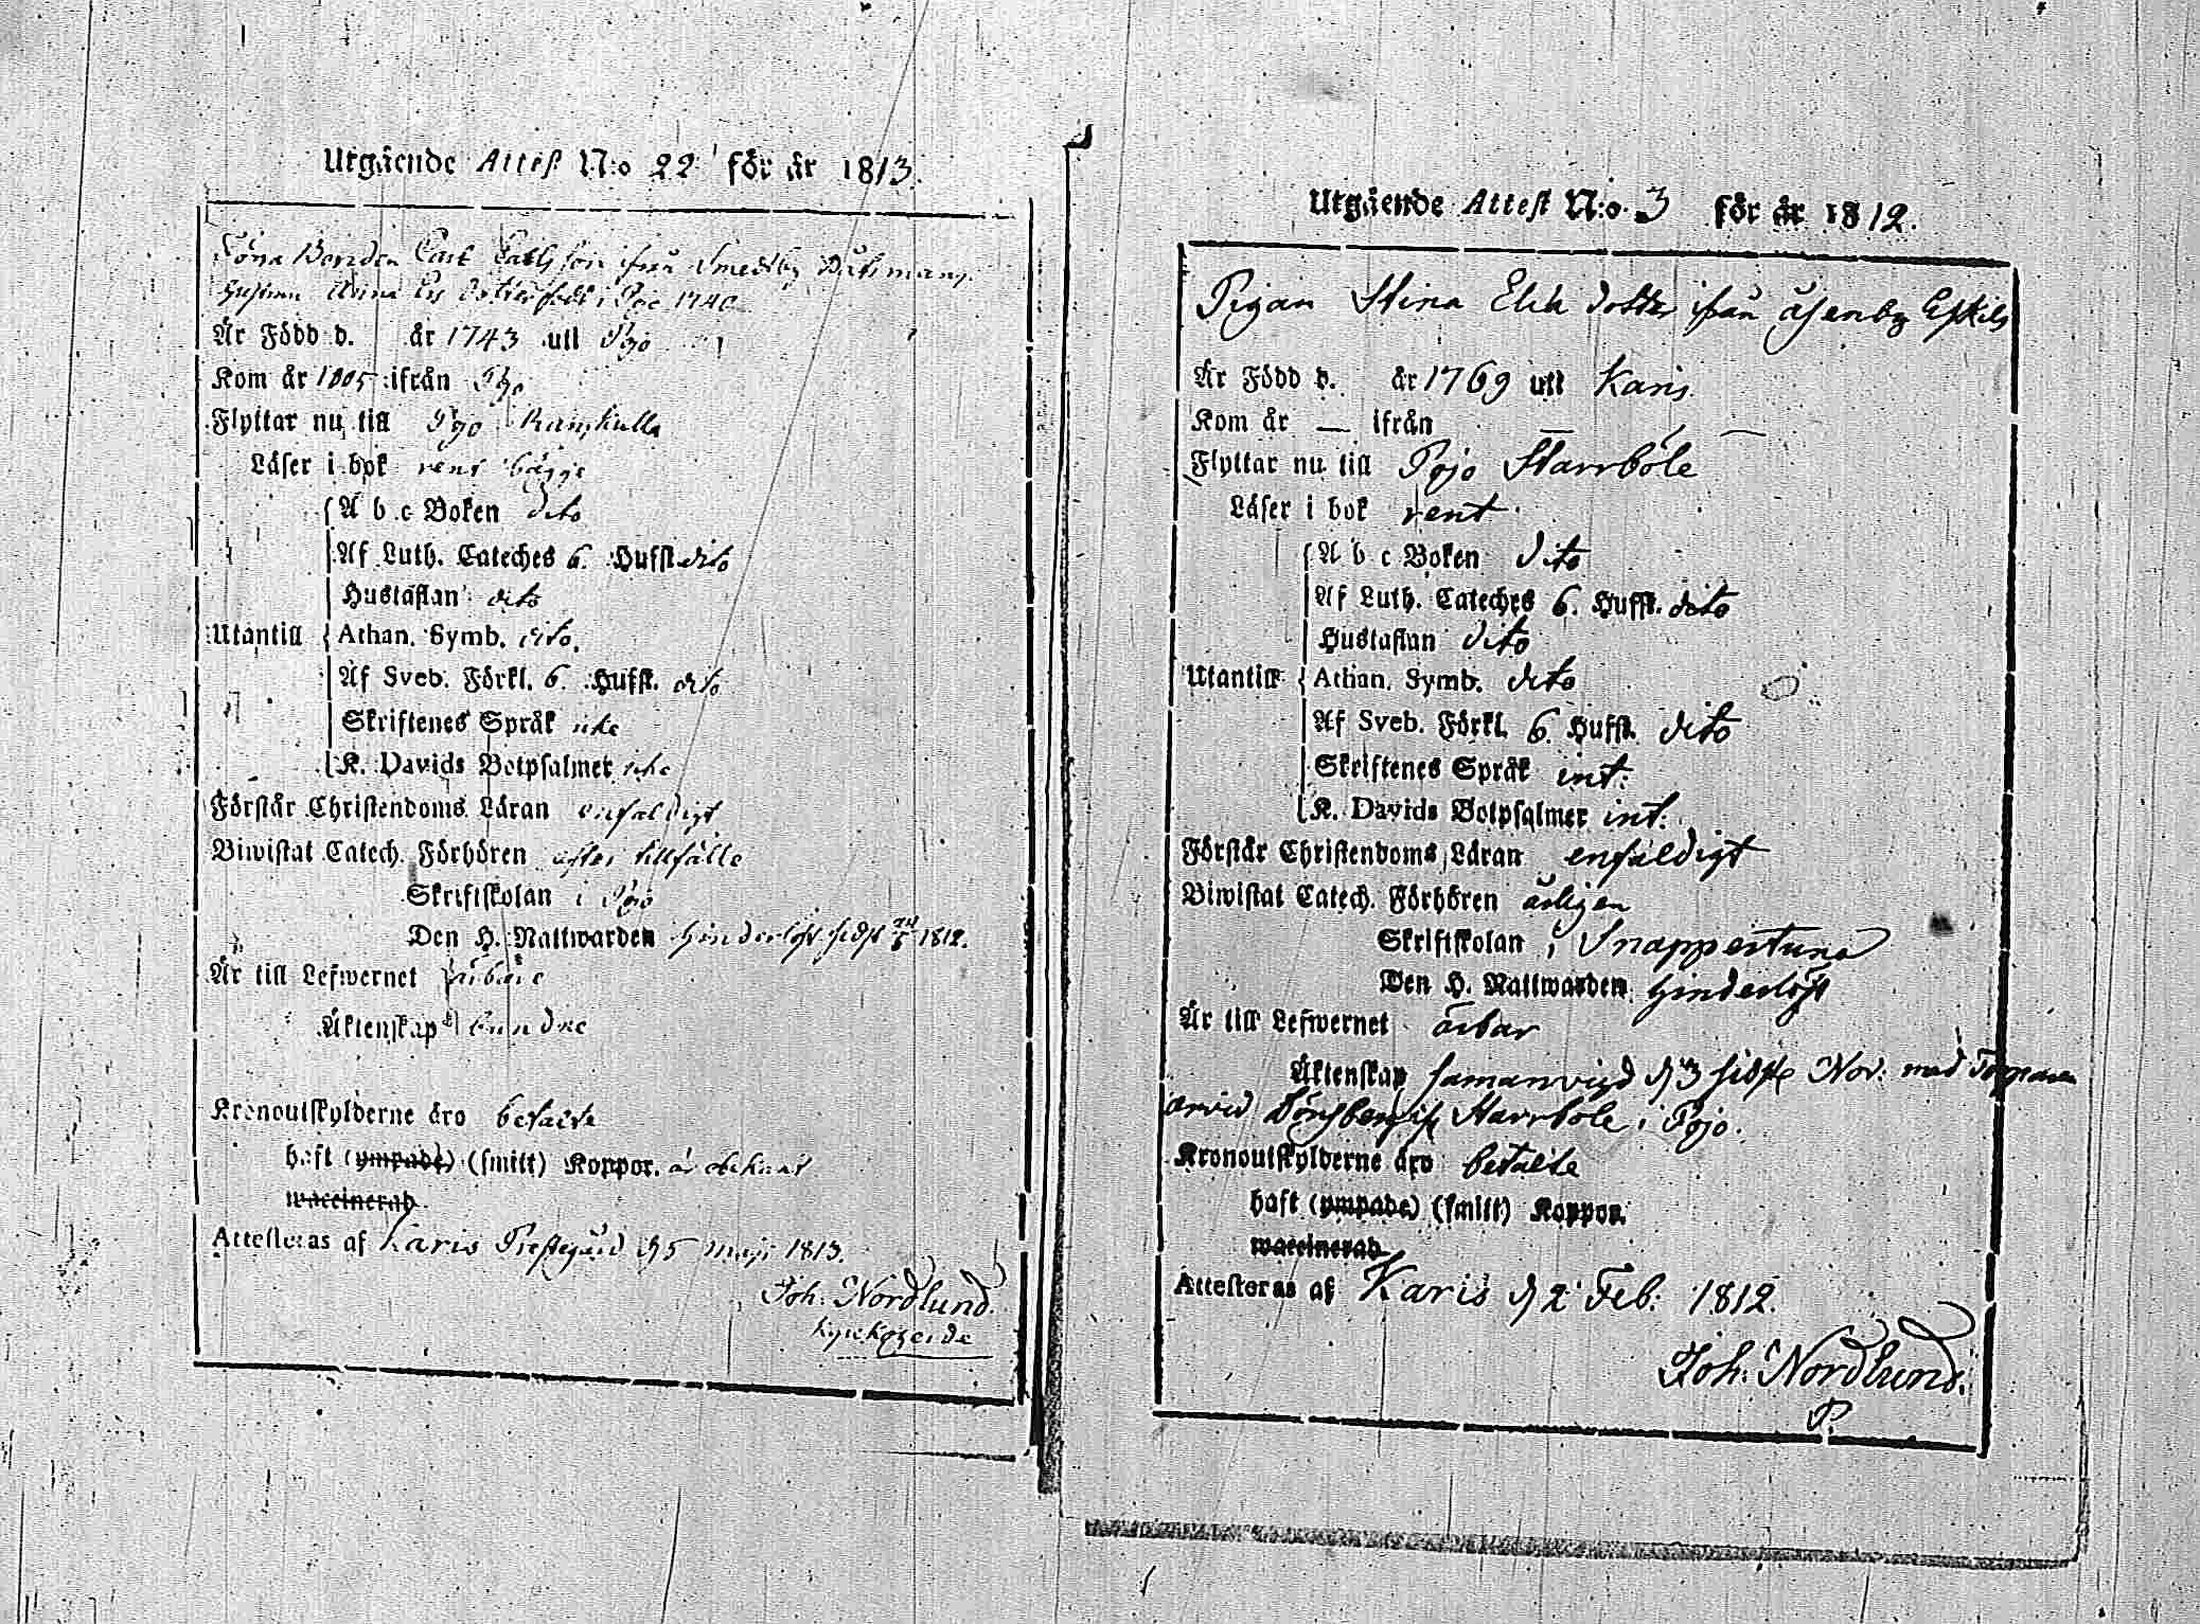 Utgående Attest N:o 22 för år 1813.
Förra Bonden Carl Carlsson ifrån Smedsby
Hustrun Anna dotter född i Pojo 1740
Är Född d. år 1743 uti Pojo
Kom år 1805 ifrån Pojo
Flyttar nu till Pojo Ramskulla
Läser i bok rent bägge
A b c Boken dito
Af Luth. Cateches 6. Hufst. dito
Hustaflan dito
Utantill Athan. Symb. dito.
Af Sveb. Förkl. 6. Hufst. dito
Skriftenes Språk icke
K. Davids Botpsalmer icke
Förstår Christendoms Läran enfaldigt
Biwistat Catech. Förhören efter tillfälle
Skriftskolan i Pojo
Den H. Nattwarden hinderlöst sidst 1812.
Är till Lefwernet ärbare
Äktenskap bundne
Kronoutskylderne äro betalte
haft (ympade) (smitt) Koppor. är obekant
waccinerad
Attesteras af Karis Prestegård d 5 maji 1813.
Joh: Nordlund.
kyrkoherde
Utgående Attest N:o 3 för år 1812.
Pigan Stina Erik dotter ifrån Åsenby Eskils
Är Född d. år 1769 uti Karis.
Kom år — ifrån —
Flyttar nu till Pojo Starrböle
Läser i bok rent
A b c Boken dito
Af Luth. Cateches 6. Hufst. dito
Hustaflan dito
Utantill Athan. Symb. dito
Af Sveb. Förkl. 6. Hufst. dito
Skriftenes Språk int:
K. Davids Botpsalmer int:
Förstår Christendoms Läran enfäldigt
Biwistat Catech. Förhören årligen
Skriftskolan i Snappertuna
Den H. Nattwarden hinderlöst
Är till Lefwernet ärbar
Äktenskap samanvigd d 3 sidste Nov: med Torparen
Arvid Starrbole i Pojo.
Kronoutskylderne äro betalte
haft (ympade) (smitt) Koppor.
waccinerad
Attesteras af Karis d 2 Feb: 1812.
Joh: Nordlund.
P.